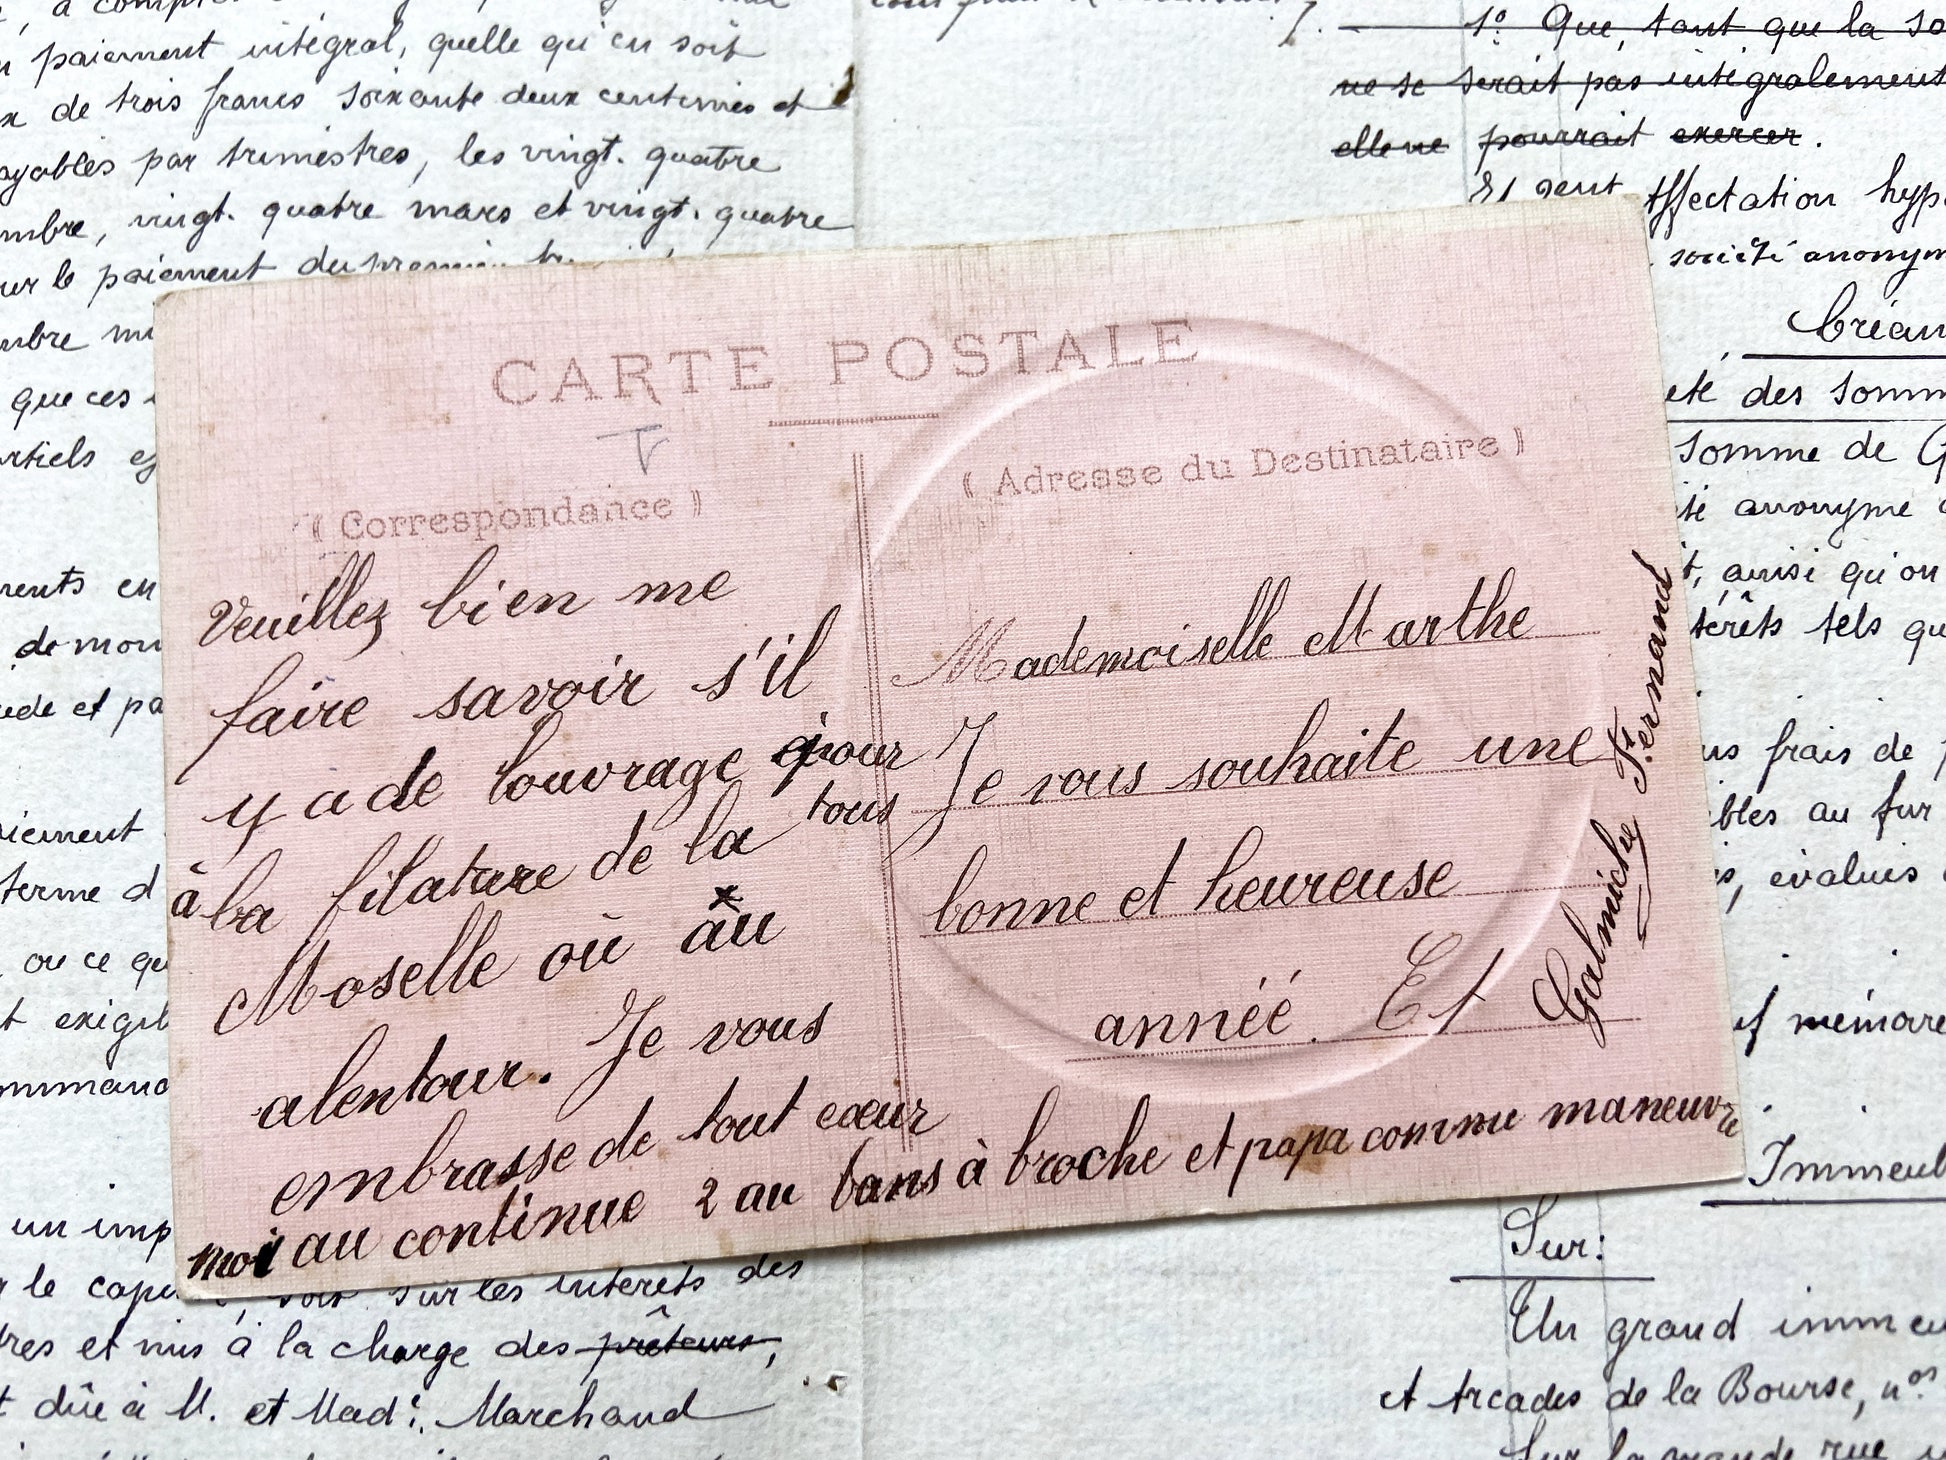 paiement intégral, quelle qu'en soit
de trois francs soixante deux centimes et
payables par trimestres, les vingt. quatre
mbre, vingt. quatre mars et vingt. quatre
ur le paiement du premi
mbre mi
que ces
rtiels
ments en
de mon
ède et pa
aiement
terme d
, ou ce qu
t exigib
ommand
un imp
le capi soit sur les intérêts des
res et mis à la charge des prêteurs,
t dûe à M. et Mad^e. Marchand
1° Que, tant que la so
ne se serait pas intégralement
elle ne pourrait exercer.
Affectation hyp
société anonym
Créan
eté des somm
somme de G
té anonyme
t, ainsi qu'on
térêts tels qu
us frais de
bles au fur
s, évalués
mémoire
Immeub
Sur:
Un grand immeu
et Arcades de la Bourse, n^os
Sur la grande rue
CARTE POSTALE
Correspondance
Veuillez bien me
faire savoir s'il
y a de louvrage pour
tous
à la filature de la
Moselle où au
alentour. Je vous
embrasse de tout cœur
moi au continue 2 au bans à broche et papa comme maneuvre
Adresse du Destinataire
Mademoiselle Marthe
Je vous souhaite une
bonne et heureuse
année. Et
Galmiche Fernand